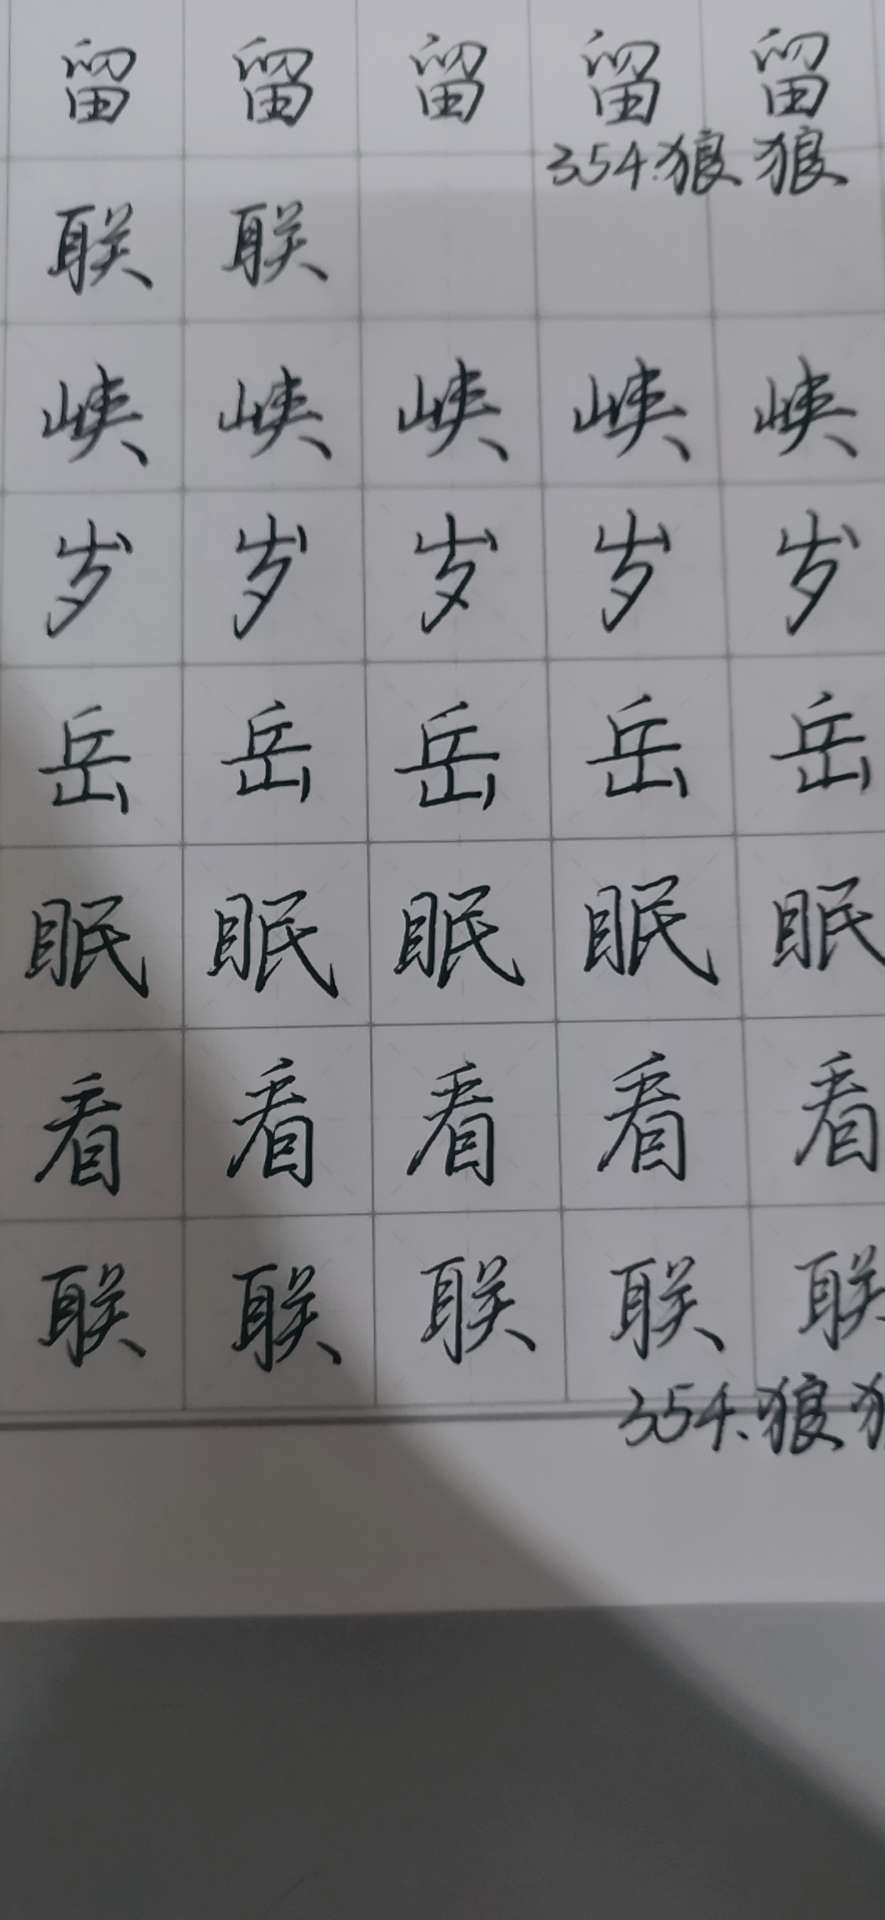 留 留 留 留 留
354.狼 狼
联 联
峡 峡 峡 峡 峡
岁 岁 岁 岁 岁
岳 岳 岳 岳 岳
眠 眠 眠 眠 眠
看 看 看 看 看
联 联 联 联 联
354.狼